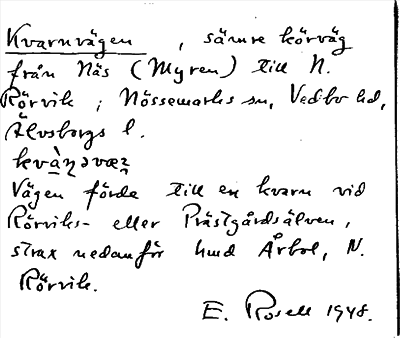 Kvarnvägen, sämre körväg
från Näs (Myren) till N.
Rörvik; Nössemarks sn, Vedbo hd,
Älvsborgs l.
Vägen förde till en kvarn vid
Rörviks- eller Prästgårdsälven,
strax nedanför hmd Årbol, N.
Rörvik.
E. Rosell 1948.